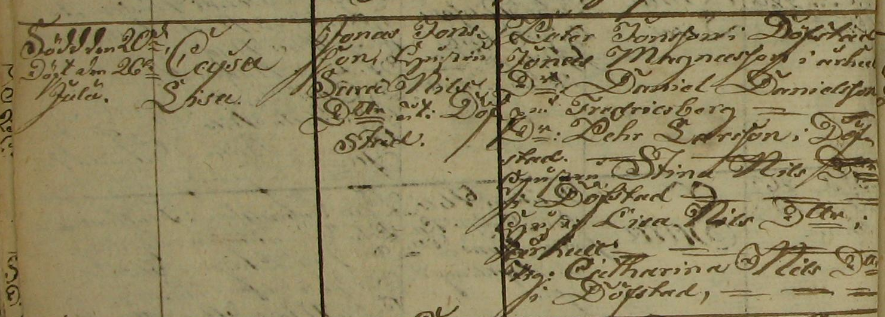 Född den 20de
Döpt den 26te
Julii.
Caysa
Lisa.
Jonas Jons-
son, Hustrun
Sara Nils
Dttr i Döf
stad.
Peter Jonsson i Döfstad
Jonas Magnusson i
Dr: Daniel Danielsson
Fredricsberg
Dr: Pehr Larsson i Döf
stad.
Hustrun Stina Nils Dttr
i Döfstad
Hust: Lisa Nils Dttr i
Pig: Catharina Nils Dr
i Döfstad,